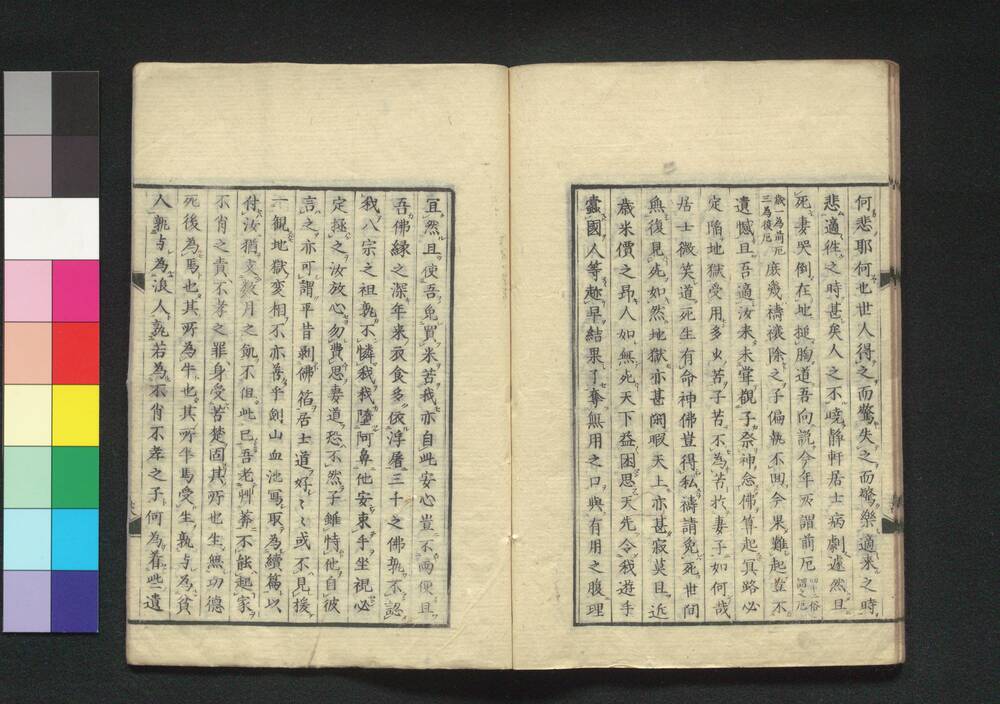 何悲耶何也世人得之而驚失之而驚樂適来之時
悲適徃之時甚矣人之不曉静軒居士病劇遽然且
死妻哭倒在地搥胸道吾向説今年所謂前厄
四十二俗謂之厄
歳一為前厄
三為後厄
庶幾禱禳除之子偏執不回今果難起豈不
遺憾且吾適汝来未甞觀子祭神念佛算起冥路必
定陥地獄受用多少苦子苦不為苦於妻子如何哉
居士微笑道死生有命神佛豈得私禱請免死世間
無復見先如然地獄亦甚閑暇天上亦甚寂莫且近
歳米價之昂人如無先天下益困思天先令我遊手
蠹國人等趂早結果了奪無用之口與有用之腹理
宜然且使吾免買米苦我亦自此安心豈不両便且
吾佛縁之深年来衣食多依浮屠三十之佛孰不認
我八宗之祖孰不憐我我墮阿鼻他安束手坐視必
定極之汝放心勿費思妻道恐不然子雖恃他自彼
言之亦可謂平昔剥佛的居士道好〻或不見援
一觀地獄変相不亦善乎劍山血池冩取為續篇以
付汝猶支數月之飢不但此已吾老州莽不能起家
不肖之責不孝之罪身受苦楚固其所也生無功德
死後為馬也其所為牛也其所牛馬受生孰与為貧
人孰与為浪人孰若為不肖不孝之子何為着些遺